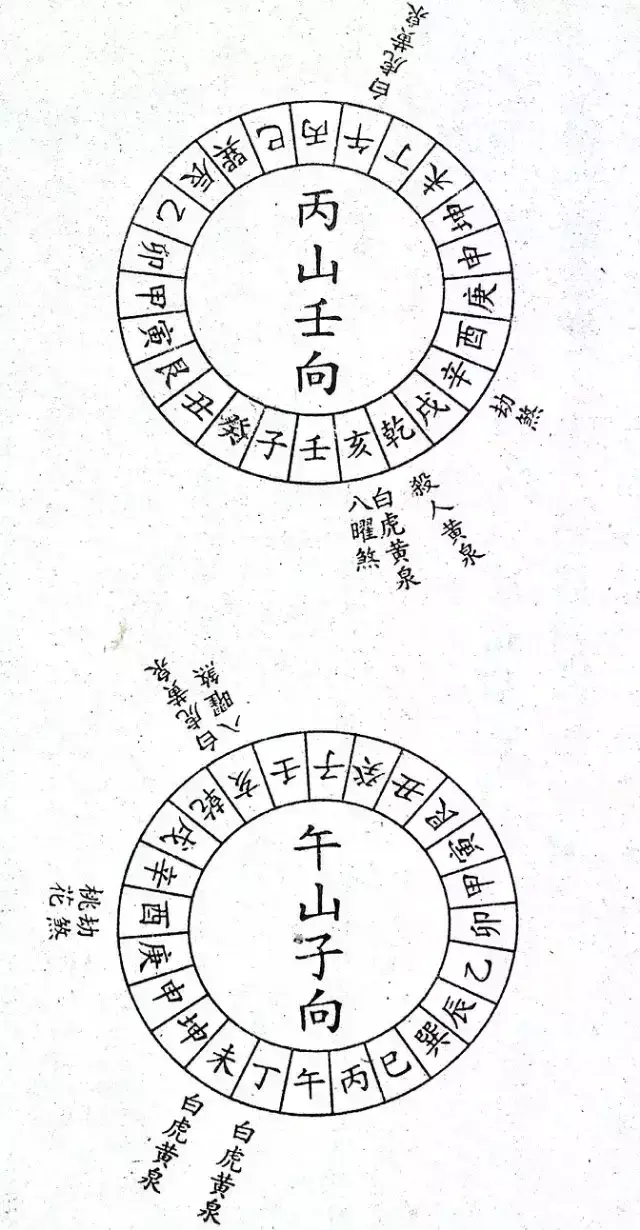 白虎黄泉
丙
午
丁
未
坤
申
庚
酉
辛
戌
乾
亥
壬
子
癸
丑
艮
寅
甲
卯
乙
辰
巽
巳
丙山壬向
劫煞
殺人黄泉
白虎黄泉
八曜煞
白虎黄泉
八曜煞
子
癸
丑
艮
寅
甲
卯
乙
辰
巽
巳
丙
午
丁
未
坤
申
庚
酉
辛
戌
乾
亥
壬
午山子向
劫煞
桃花
白虎黄泉
白虎黄泉